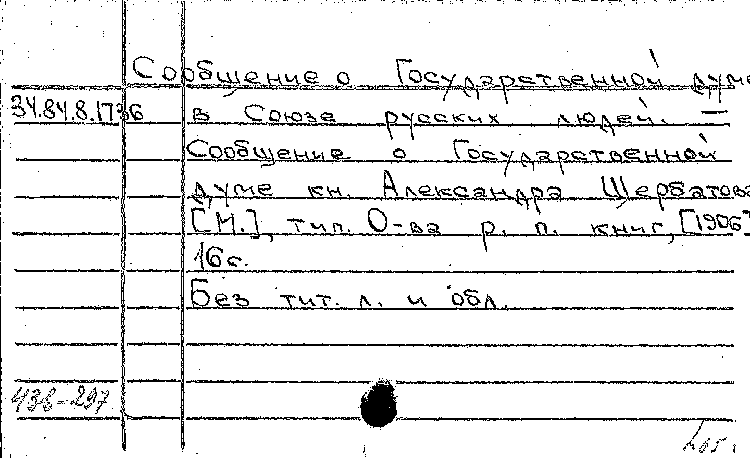 Сообщение о Государственной думе
34.84.8.1736 в Союзе русских людей. —
Сообщение о Государственной
думе кн. Александра Щербатова
[М.], тип. О-ва р. п. книг, [1906]
16 с.
Без тит. л. и обл.
438-297